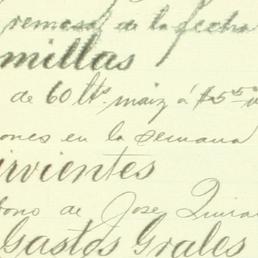 remesa de la fecha
millas
de 60 lts. maiz á $5.50
ones en la semana
irvientes
ono de Jose
Gastos Grales